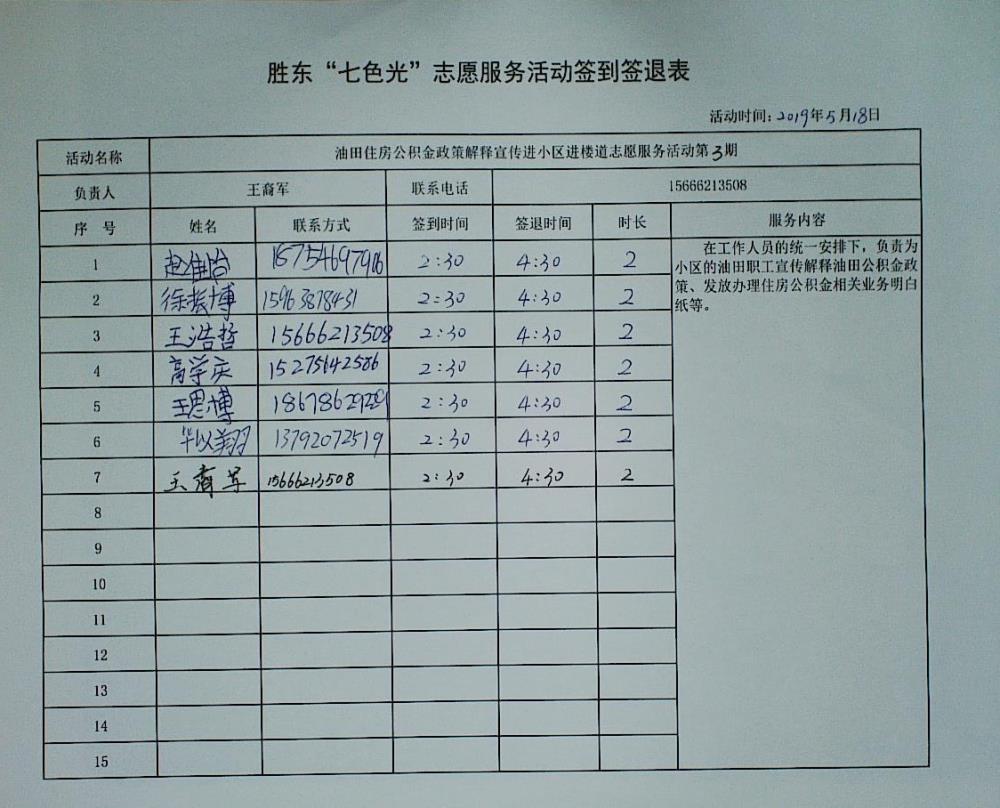 胜东“七色光”志愿服务活动签到签退表
活动时间：2019年5月18日
活动名称 油田住房公积金政策解释宣传进小区进楼道志愿服务活动第3期
负责人 王裔军 联系电话 15666213508
序 号 姓名 联系方式 签到时间 签退时间 时长 服务内容
1 赵佳怡 18754697916 2:30 4:30 2
在工作人员的统一安排下，负责为
小区的油田职工宣传解释油田公积金政
策、发放办理住房公积金相关业务明白
纸等。
2 徐振博 15963878431 2:30 4:30 2
3 王浩哲 15666213508 2:30 4:30 2
4 高学庆 15275642586 2:30 4:30 2
5 王思博 2:30 4:30 2
6 毕以翔 13792072519 2:30 4:30 2
7 王裔军 15666213508 2:30 4:30 2
8
9
10
11
12
13
14
15